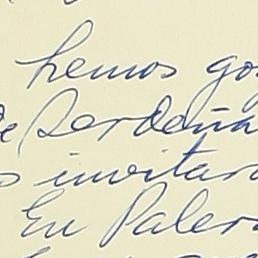 hemos go
de Serdeña
s invitar
En Paler